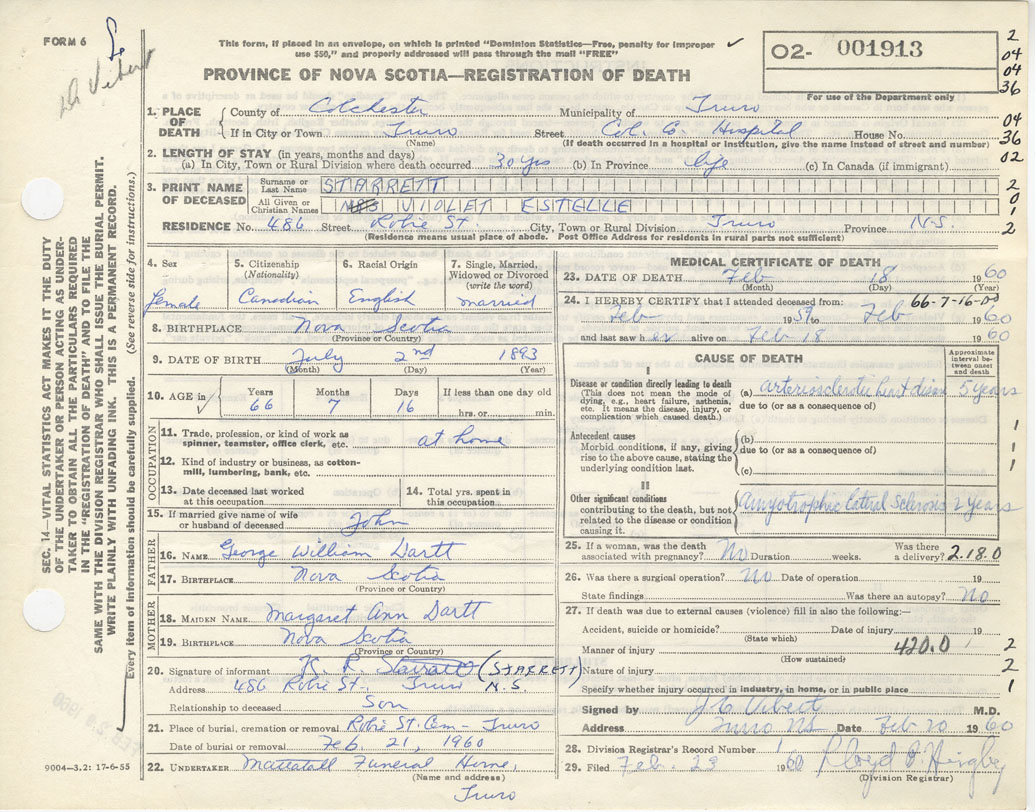 FORM 6
Dr Vibert
This form, if placed in an envelope, on which is printed "Dominion Statistics—Free, penalty for improper
use $50," and properly addressed will pass through the mail "FREE"
PROVINCE OF NOVA SCOTIA—REGISTRATION OF DEATH
02- 001913
For use of the Department only
2
04
04
36
04
36
02
2
0
1
2
1. PLACE OF DEATH
County of Colchester Municipality of Truro
If in City or Town Truro Street Col. Co. Hospital House No.
(Name) (If death occurred in a hospital or institution, give the name instead of street and number)
2. LENGTH OF STAY (in years, months and days)
(a) In City, Town or Rural Division where death occurred 30 yrs (b) In Province life (c) In Canada (if immigrant)
3. PRINT NAME OF DECEASED
Surname or Last Name STARRETT
All Given or Christian Names VIOLET ESTELLE
RESIDENCE No. 486 Street Robie St. City, Town or Rural Division Truro Province N.S.
(Residence means usual place of abode. Post Office Address for residents in rural parts not sufficient)
4. Sex female
5. Citizenship (Nationality) Canadian
6. Racial Origin English
7. Single, Married, Widowed or Divorced (write the word) married
8. BIRTHPLACE Nova Scotia
(Province or Country)
9. DATE OF BIRTH July 2nd 1893
(Month) (Day) (Year)
10. AGE in Years 66 Months 7 Days 16 If less than one day old hrs. or min.
OCCUPATION
11. Trade, profession, or kind of work as spinner, teamster, office clerk, etc. at home
12. Kind of industry or business, as cotton-mill, lumbering, bank, etc.
13. Date deceased last worked at this occupation
14. Total yrs. spent in this occupation
15. If married give name of wife or husband of deceased John
FATHER
16. NAME George William Dartt
17. BIRTHPLACE Nova Scotia
(Province or Country)
MOTHER
18. MAIDEN NAME Margaret Ann Dartt
19. BIRTHPLACE Nova Scotia
(Province or Country)
20. Signature of informant K. R. Starratt (STARRETT)
Address 486 Robie St., Truro N.S.
Relationship to deceased Son
21. Place of burial, cremation or removal Robie St. Cem - Truro
Date of burial or removal Feb. 21, 1960
22. UNDERTAKER Mattatall Funeral Home,
(Name and address)
Truro
MEDICAL CERTIFICATE OF DEATH
23. DATE OF DEATH Feb 18 1960
(Month) (Day) (Year)
24. I HEREBY CERTIFY that I attended deceased from: 66-7-16-03
Feb 1959 to Feb 1960
and last saw her alive on Feb 18 1960
CAUSE OF DEATH
Approximate interval between onset and death
I
Disease or condition directly leading to death
(This does not mean the mode of dying, e.g., heart failure, asthenia, etc. It means the disease, injury, or complication which caused death.)
(a) arteriosclerotic heart disease 5 years
due to (or as a consequence of)
Antecedent causes
Morbid conditions, if any, giving rise to the above cause, stating the underlying condition last.
(b)
due to (or as a consequence of)
(c)
1
1
1
II
Other significant conditions
contributing to the death, but not related to the disease or condition causing it.
Amyotrophic Lateral Sclerosis 2 years
25. If a woman, was the death associated with pregnancy? No Duration weeks. Was there a delivery? 2.18.0
26. Was there a surgical operation? No Date of operation 19
State findings Was there an autopsy? No
27. If death was due to external causes (violence) fill in also the following:—
Accident, suicide or homicide? Date of injury 19
(State which)
Manner of injury 420.0 2
(How sustained)
Nature of injury 2
Specify whether injury occurred in industry, in home, or in public place 1
Signed by J C Vibert M.D.
Address Truro NS Date Feb 20 1960
28. Division Registrar's Record Number
29. Filed Feb. 23 1960
(Division Registrar)
SEC. 14—VITAL STATISTICS ACT MAKES IT THE DUTY
OF THE UNDERTAKER OR PERSON ACTING AS UNDER-
TAKER TO OBTAIN ALL THE PARTICULARS REQUIRED
IN THE "REGISTRATION OF DEATH" AND TO FILE THE
SAME WITH THE DIVISION REGISTRAR WHO SHALL ISSUE THE BURIAL PERMIT.
WRITE PLAINLY WITH UNFADING INK. THIS IS A PERMANENT RECORD.
Every item of information should be carefully supplied. (See reverse side for instructions.)
9004—3.2: 17-6-55